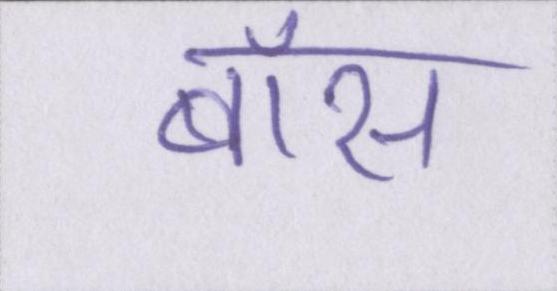 बॉस